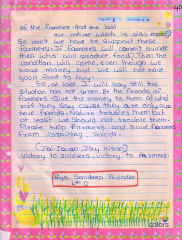 of the farmers and the last
one is nature which is also costly
So don't we have to support these
farmers. If farmers will commit suicide
then who will produce food. Then the
condition will come, even though we
have money but we will not have
good food to buy.
So at last I will say still the
situation has not been. Be the friends of
farmers. Give the money to them
they say, cause they are only our
true friends. Nature troubles them but
at least we should not trouble them.
Please help farmers and save farmers
from committing suicide.
(Jai Jawan Jay kisan)
Victory to soldiers, victory to farmers.
Riya Sandeep Bhandari
colors